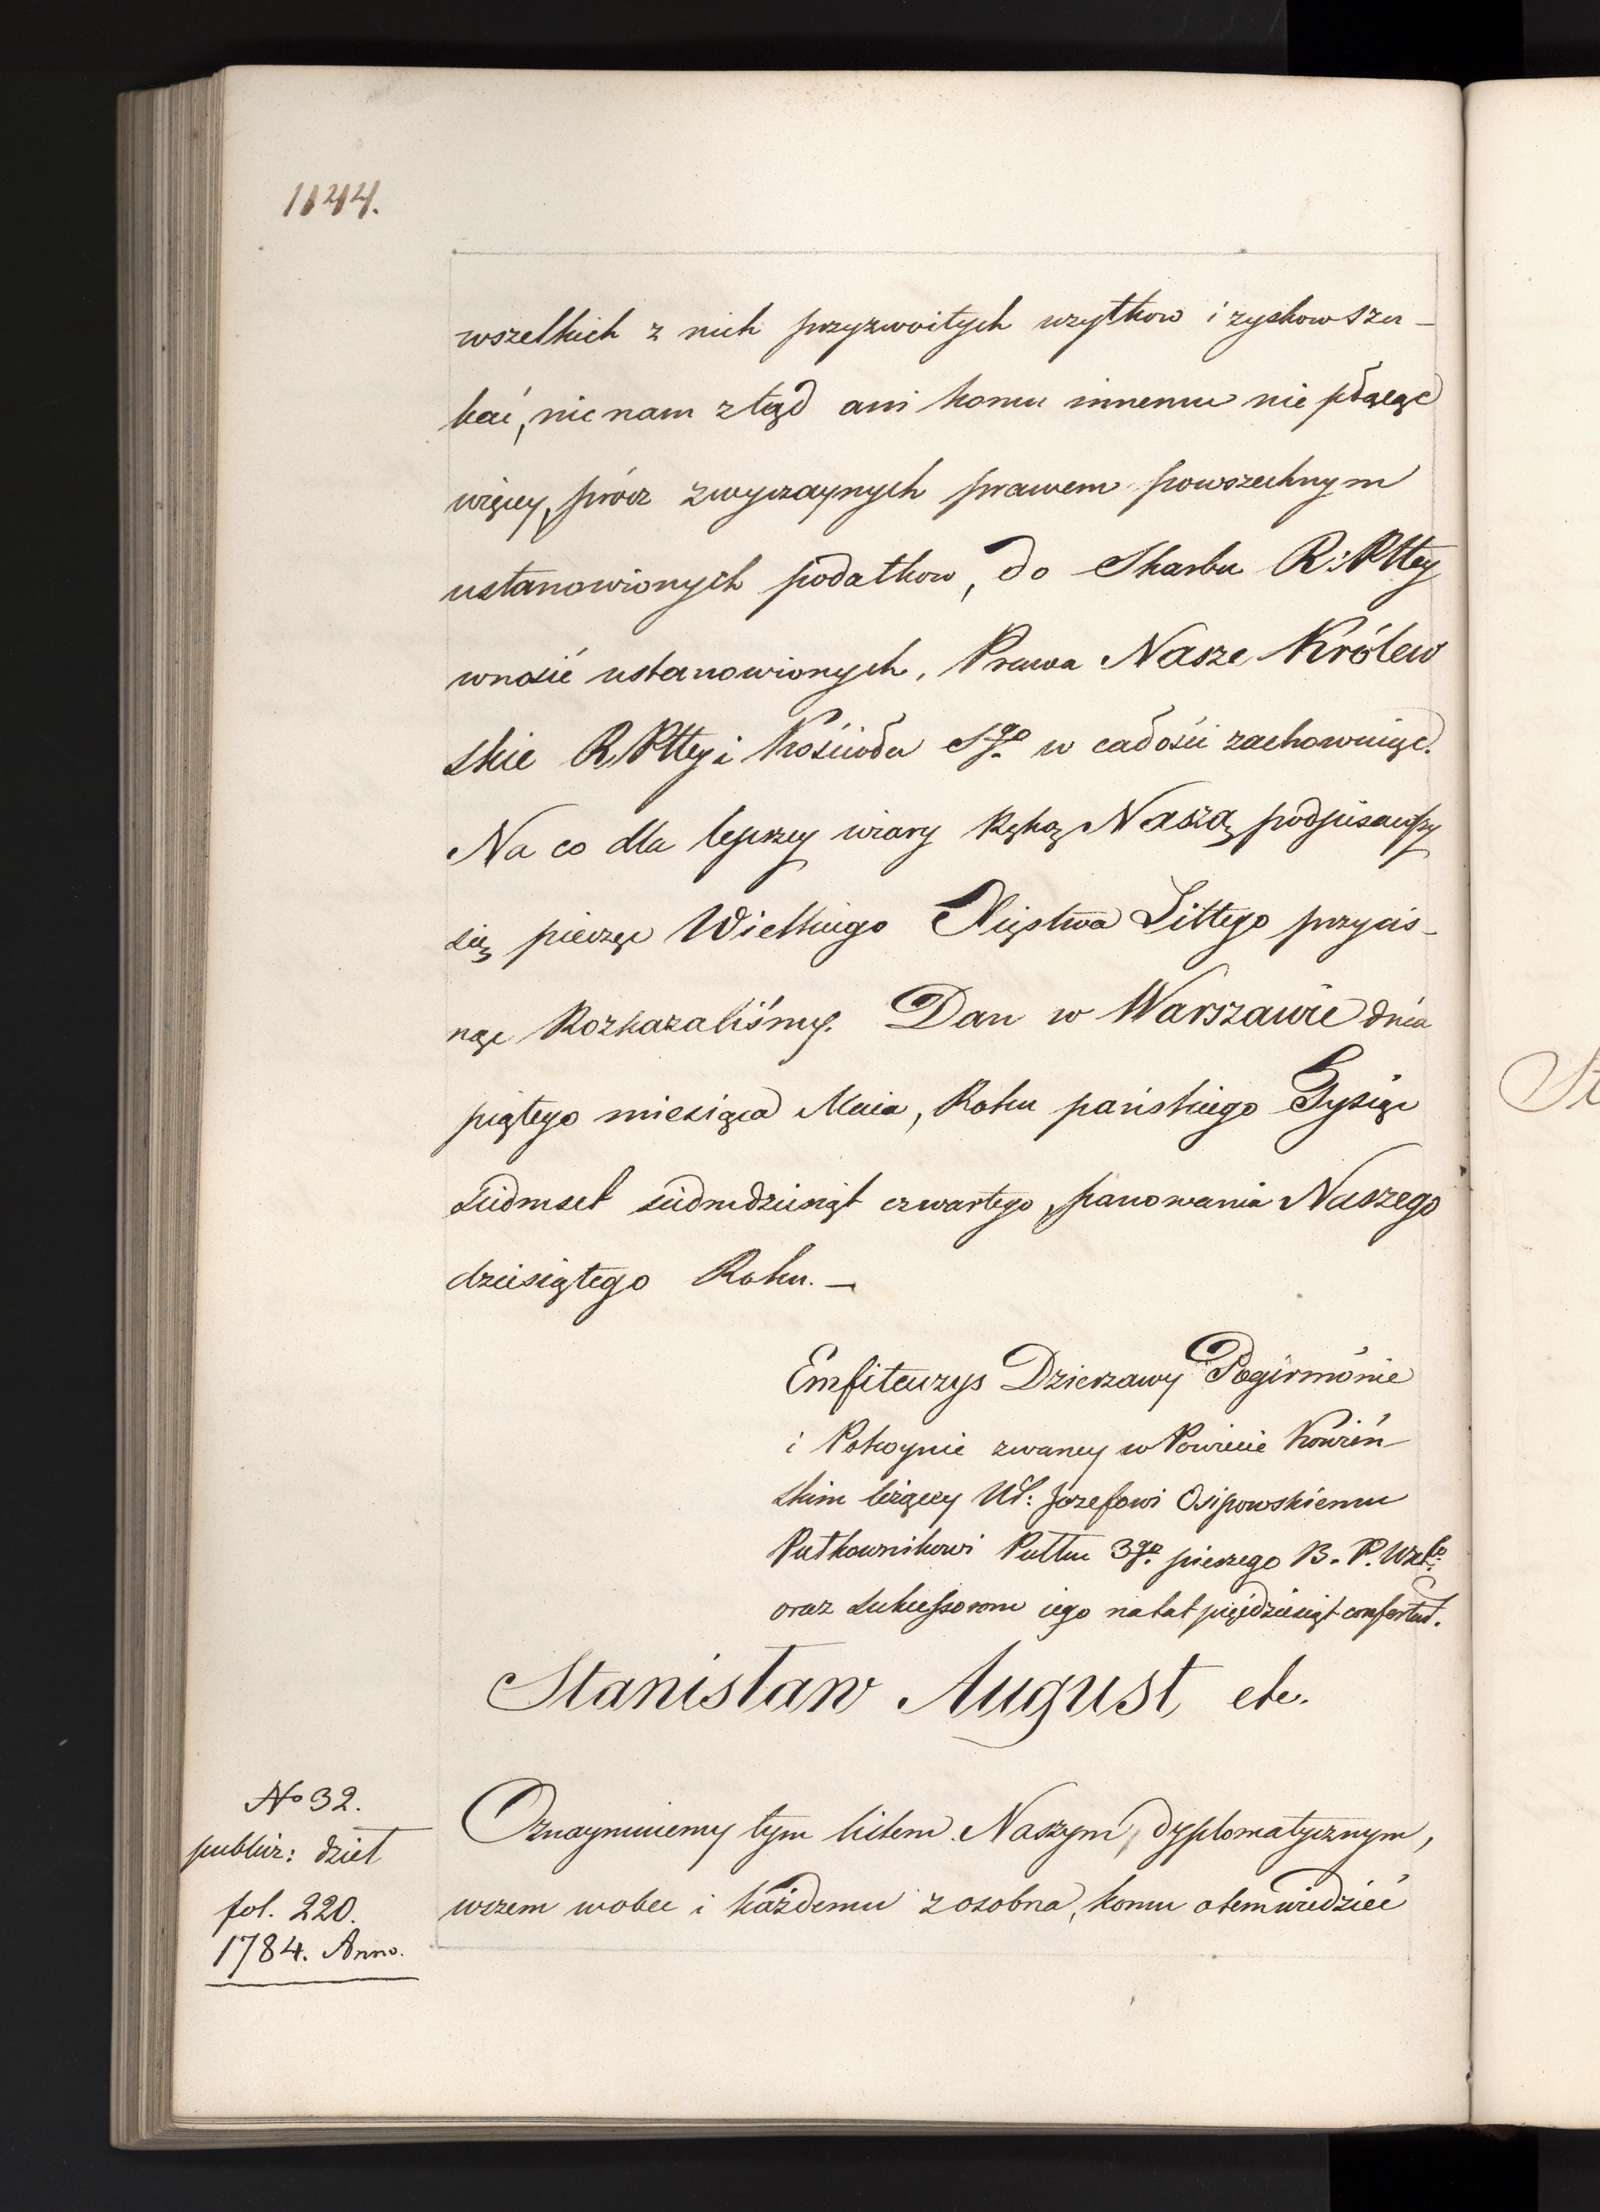 1144.
wszelkich z nich przyzwoitych użytkow i zyskow szu-
kać, nic nam ztąd ani komu innemu nie płacąc
więcy, prócz zwyczaynych prawem powszechnym
ustanowionych podatkow, do Skarbu R: Pttey
wnosić ustanowionych, Prawa Nasze Królew
skie R Pttey i Kościoła Sgo w całości zachowuiąc.
Na co dla lepszey wiary Ręką Naszą podpisawszy
się pieczęc Wielkiego Xięstwa Littego przycis-
nąc Rozkazaliśmy. Dan w Warszawie dnia
piątego miesiąca Maia, Roku pańskiego Tysiąc
siedmset siedmdziesiąt czwartego, panowania Naszego
dziesiątego Roku. —
Emfiteuzys Dzierzawy Pogirmónie
i Pokoynie zwaney w Powiecie Kowień
skim leżącey Uł: Jozefowi Osipowskiemu
Pułkownikowi Pułku 3go pieszego B. P. Wzkº
oraz sukcessorom iego na lat pięćdziesiąt confertur.
Stanisław August etc.
No 32.
publiz: dziet
fol. 220.
1784. Anno.
Oznaymuiemy tym listem Naszym, dyplomatycznym,
wszem wobec i każdemu z osobna, komu otem wiedzieć
St